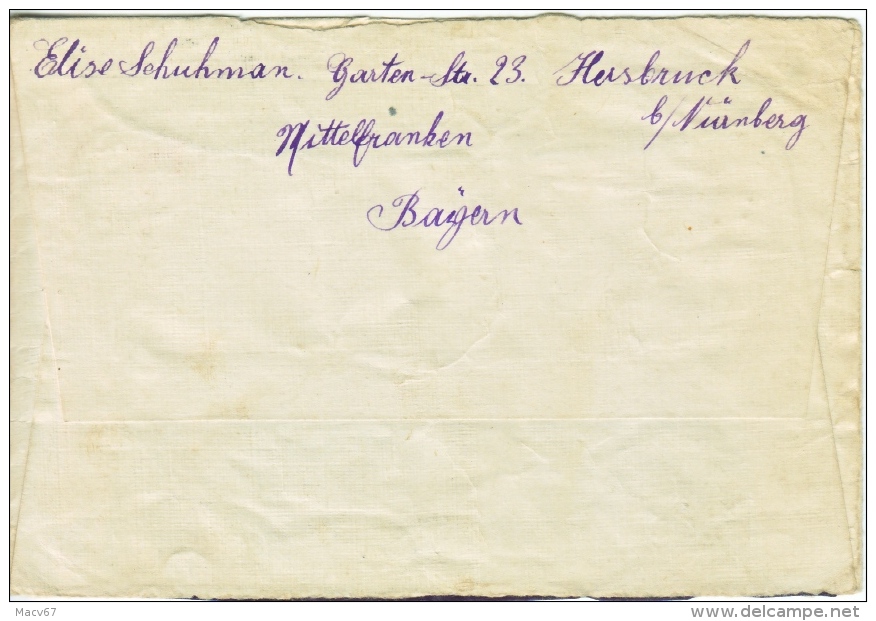 Elise Schuhman. Garten-Str. 23. Hersbruck
b/Nürnberg
Mittelfranken
Bayern
Macv67
delcampe.net